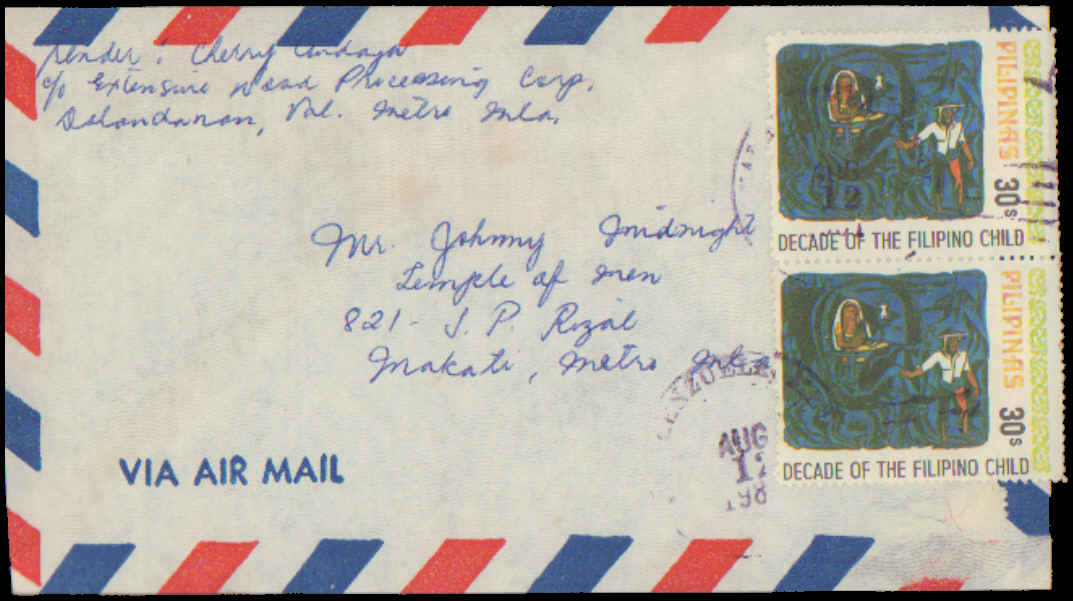 Sender: Cherry Andaya
c/o Extensive Wood Processing Corp.
Dalandanan, Val. Metro Mla.
Mr. Johnny Midnight
Temple of Men
821 - J. P. Rizal
Makati, Metro Mla
VIA AIR MAIL
PILIPINAS 30s
DECADE OF THE FILIPINO CHILD
PILIPINAS 30s
DECADE OF THE FILIPINO CHILD
12
AUG
12
198